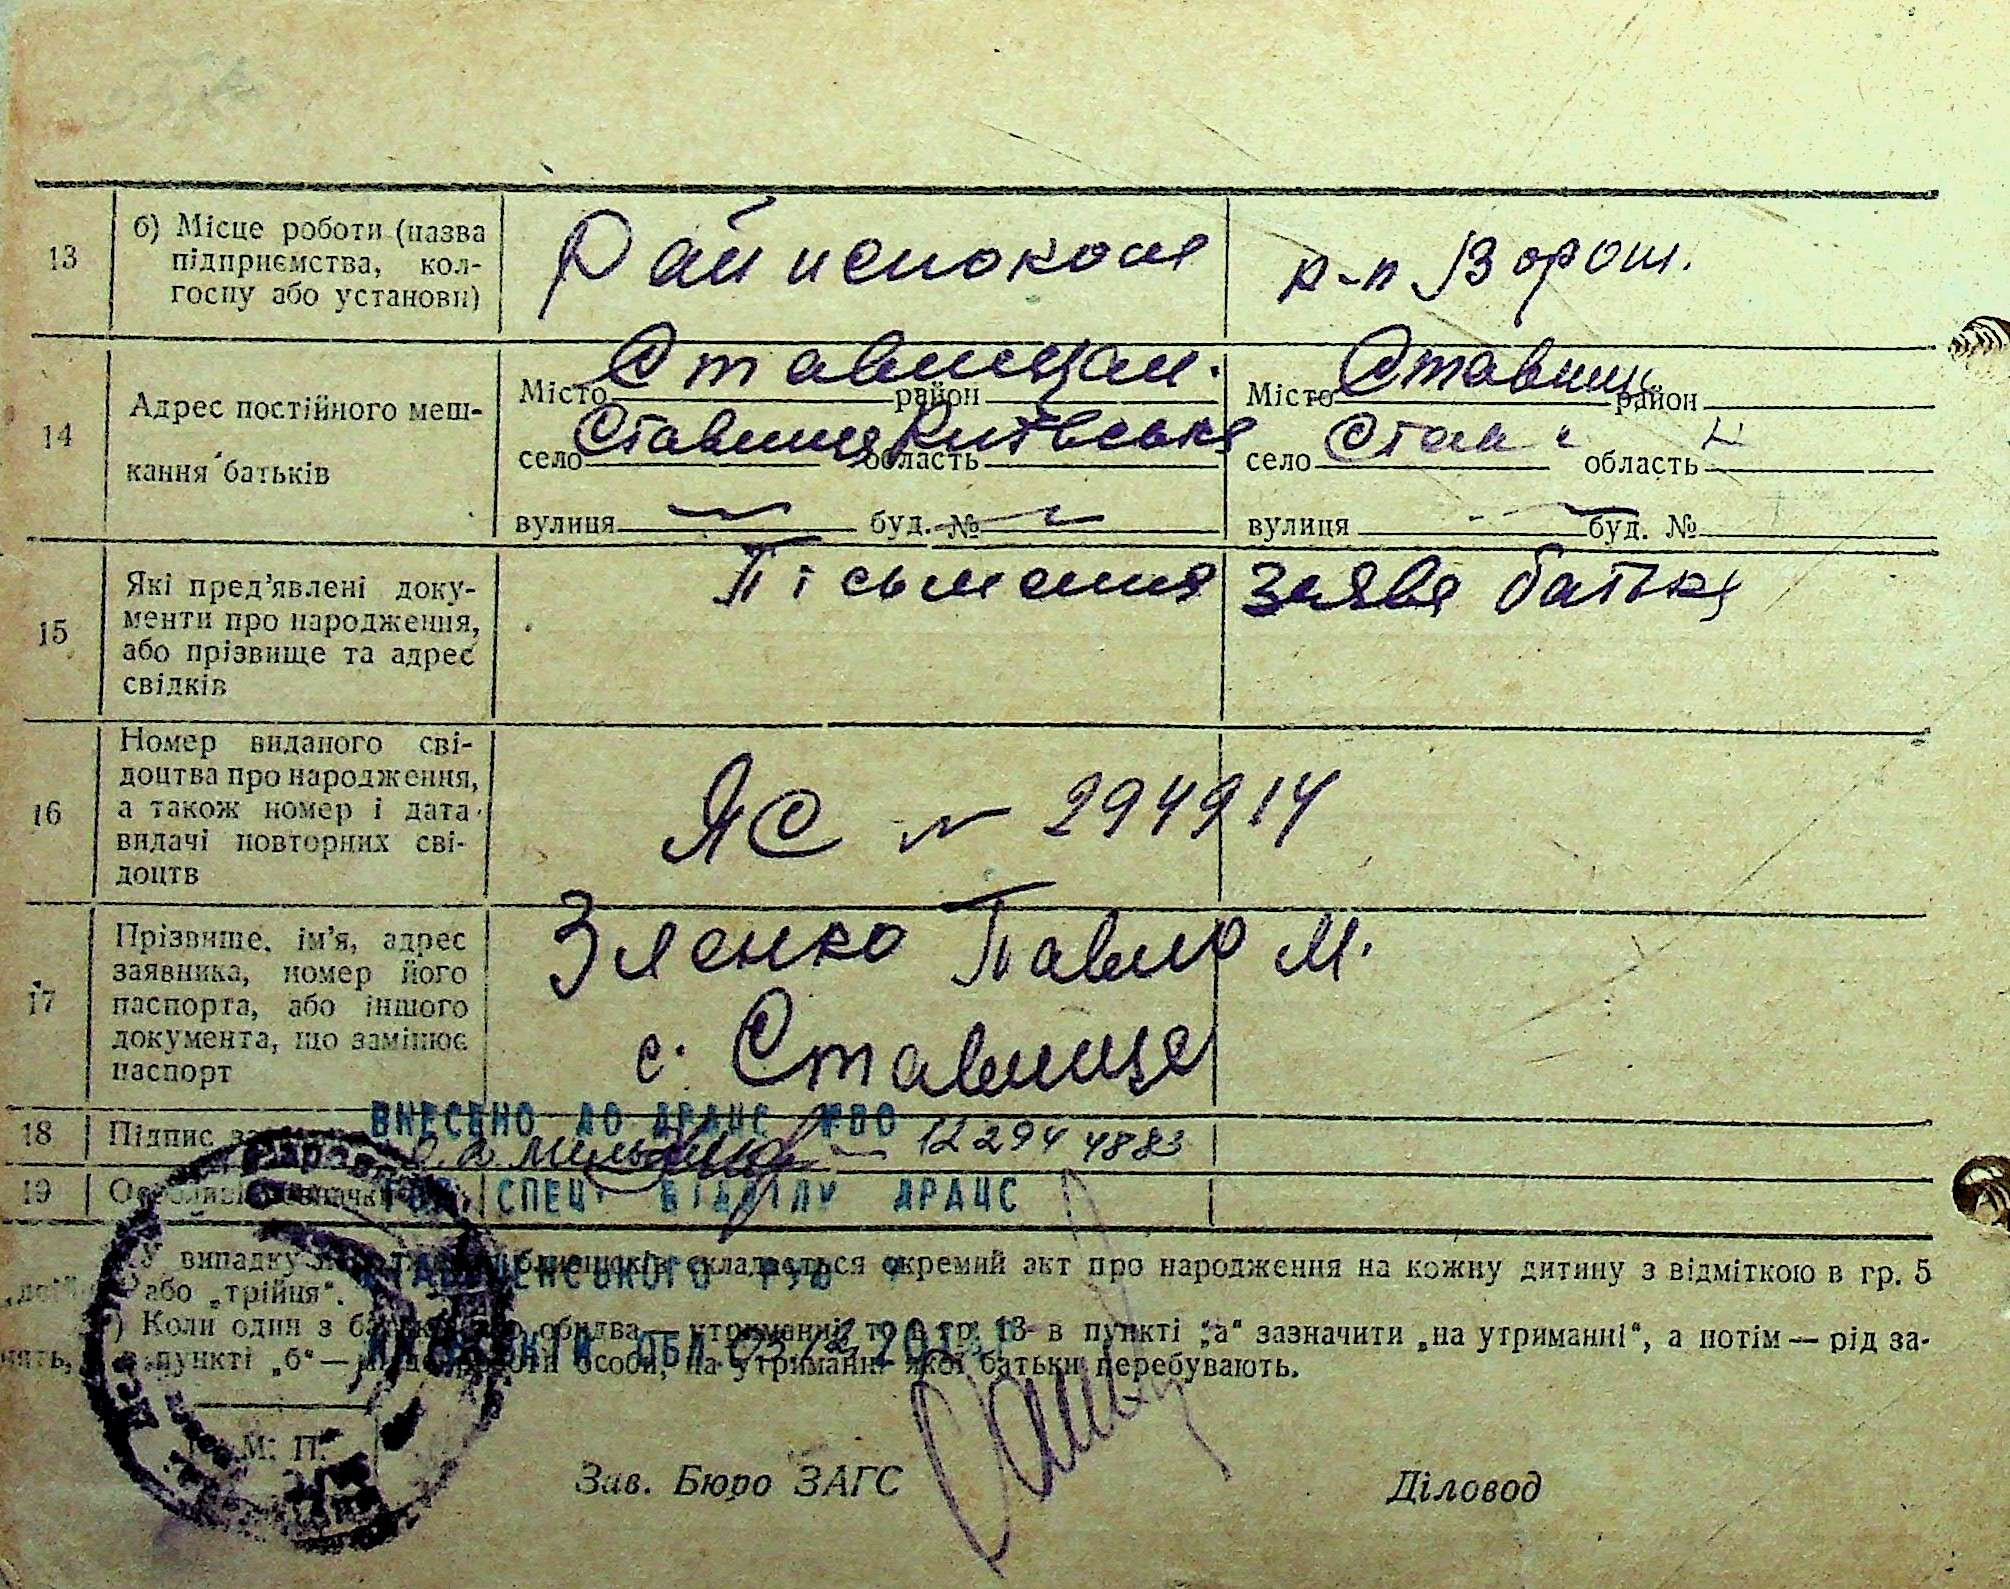 13
б) Місце роботи (назва
підприємства, кол-
госпу або установи)
к-п Ворош.
14
Адрес постійного меш-
кання батьків
Ставищан.
Місто район
Ставище Київська
село область
вулиця буд. №
Ставищ
Місто район
Став
село область
вулиця буд. №
15
Які пред'явлені доку-
менти про народження,
або прізвище та адрес
свідків
Пісьмення заява батька
16
Номер виданого сві-
доцтва про народження,
а також номер і дата
видачі повторних сві-
доцтв
ЯС № 294914
17
Прізвише, ім'я, адрес
заявника, номер його
паспорта, або іншого
документа, що замінює
паспорт
Зленко Павло М.
с. Ставище
18
Підпис
ВНЕСЕНО ДО ДРАЦС
122944883
19
СПЕЦ ВІДДІЛУ ДРАЦС
У випадку складається окремий акт про народження на кожну дитину з відміткою в гр. 5
або „трійня".
СТАВИЩЕНСЬКОГО РУЮ
Коли один з обидва — утриманні, то в гр. 13 в пункті „а" зазначити „на утриманні", а потім — рід за-
нять, пункті „б" — особи, на утриманні якої батьки перебувають.
ОБЛ.
М. П.
Зав. Бюро ЗАГС
Діловод